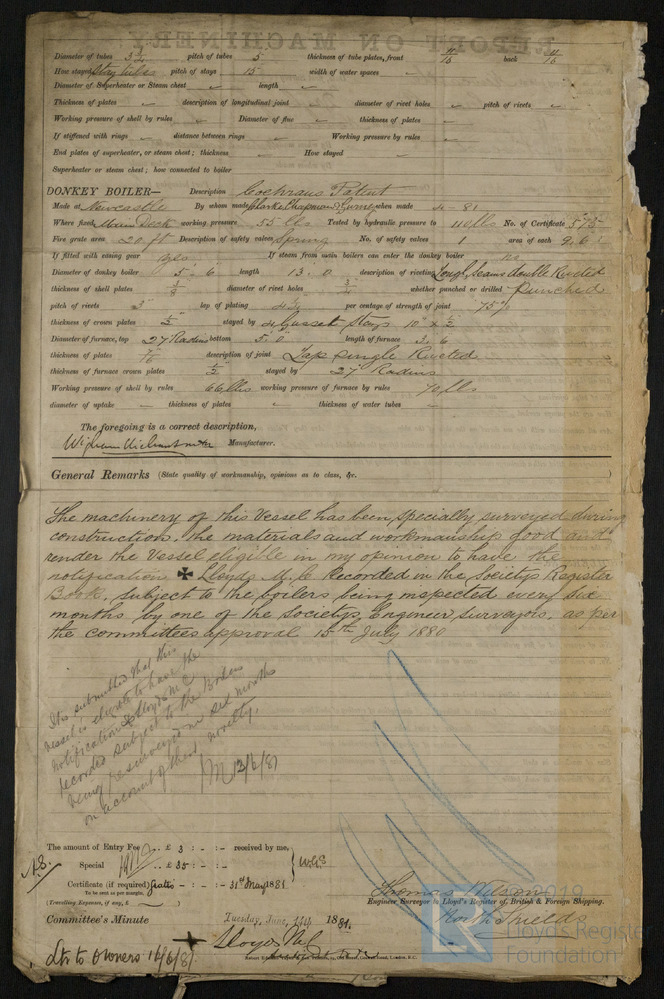 Diameter of tubes 3 1/4 pitch of tubes 5 thickness of tube plates, front 11/16 back 11/16
How stayed Stay tubes pitch of stays 15 width of water spaces -
Diameter of Superheater or Steam chest length
Thickness of plates description of longitudinal joint diameter of rivet holes pitch of rivets
Working pressure of shell by rules Diameter of flue thickness of plates
If stiffened with rings distance between rings Working pressure by rules
End plates of superheater, or steam chest; thickness How stayed
Superheater or steam chest; how connected to boiler
DONKEY BOILER— Description Cochrans Patent
Made at Newcastle By whom made Clarke Chapman & Gurney when made 4 - 81
Where fixed Main Deck working pressure 55 lbs Tested by hydraulic pressure to 110 lbs No. of Certificate 575
Fire grate area 20 ft Description of safety valves Spring No. of safety valves 1 area of each 9.6
If fitted with easing gear yes If steam from main boilers can enter the donkey boiler no
Diameter of donkey boiler 5' 6 length 13. 0 description of riveting Long Seams double Riveted
thickness of shell plates 3/8 diameter of rivet holes 3/4 whether punched or drilled Punched
pitch of rivets 3" lap of plating per centage of strength of joint 75%
thickness of crown plates 1/2 stayed by 4 Gusset Stays 10" x 1/2
Diameter of furnace, top 27 Radius bottom 5' 0" length of furnace 3. 6
thickness of plates 7/16 description of joint Laps single Riveted
thickness of furnace crown plates 1/2 stayed by 27" Radius
Working pressure of shell by rules 66 lbs working pressure of furnace by rules 70 lbs
diameter of uptake - thickness of plates - thickness of water tubes -
The foregoing is a correct description,
Manufacturer.
General Remarks (State quality of workmanship, opinions as to class, &c.
The machinery of this Vessel has been specially surveyed during
construction, the materials and workmanship good and
render the Vessel eligible in my opinion to have the
notification ✠ Lloyds M.C Recorded in the Societys Register
Book, subject to the boilers being inspected every six
months by one of the Societys Engineer Surveyors, as per
the committees approval 15th July 1880
It is submitted that this
vessel is eligible to have the
notification ✠ Lloyds M C
recorded subject to the Boilers
being resurveyed in six months
on account of their novelty.
13/6/81
The amount of Entry Fee .. £ 3 : - : - received by me,
Special .. £ 35 : - : -
Certificate (if required) Gratis - : - : - 31st May 1881
To be sent as per margin.
(Travelling Expenses, if any, £ )
Thomas Wilson
Engineer Surveyor to Lloyd's Register of British & Foreign Shipping.
North Shields
Committee's Minute Tuesday, June, 14th 1881.
+ Lloyds M.C
Ltr to Owners 16/6/81
2019
Lloyd's Register
Foundation